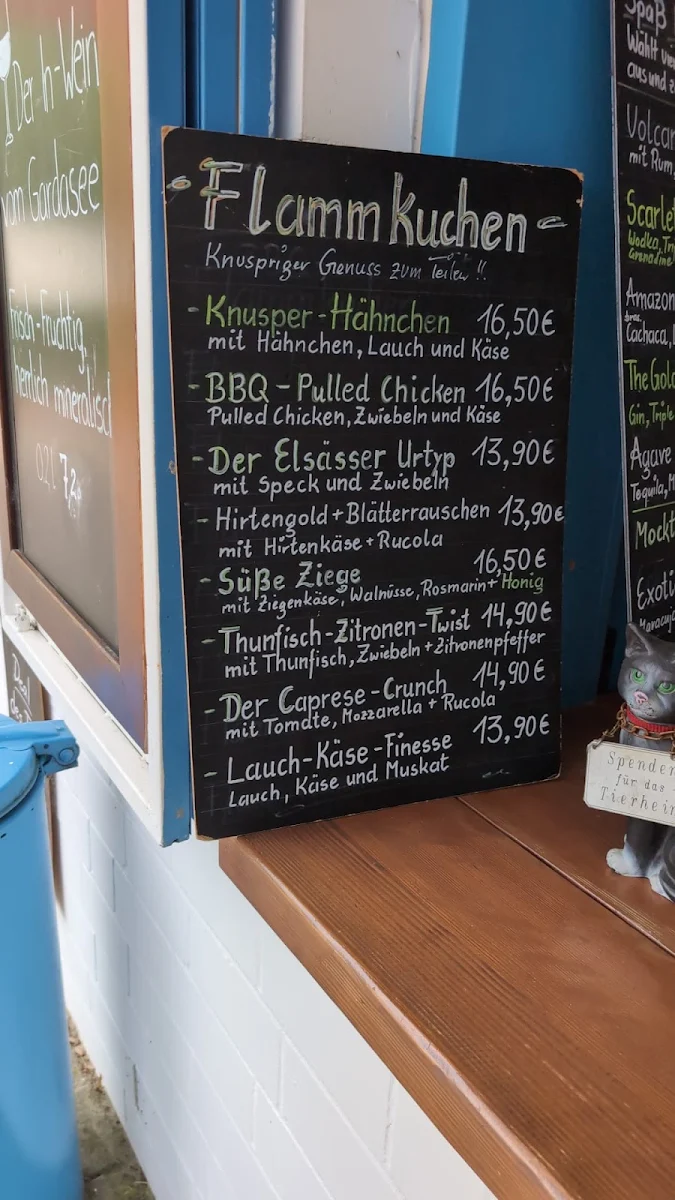 Der In-Wein
vom Gardasee
Frisch-Fruchtig,
herrlich mineralisch
0,2l 7,20
- Flammkuchen -
Knuspriger Genuss zum Teilen !!
- Knusper-Hähnchen 16,50€
mit Hähnchen, Lauch und Käse
- BBQ - Pulled Chicken 16,50€
Pulled Chicken, Zwiebeln und Käse
- Der Elsässer Urtyp 13,90€
mit Speck und Zwiebeln
- Hirtengold + Blätterrauschen 13,90€
mit Hirtenkäse + Rucola
- Süße Ziege 16,50€
mit Ziegenkäse, Walnüsse, Rosmarin + Honig
- Thunfisch-Zitronen-Twist 14,90€
mit Thunfisch, Zwiebeln + Zitronenpfeffer
- Der Caprese-Crunch 14,90€
mit Tomate, Mozzarella + Rucola
- Lauch-Käse-Finesse 13,90€
Lauch, Käse und Muskat
Spaß
Wählt
aus und
Volcan
mit Rum,
Scarlet
Wodka,
Grenadine
Amazon
bras.
Cachaca,
The Gold
Gin, Triple
Agave
Tequila,
Mockt
Exoti
Maracuj
Spenden
für das
Tierheim